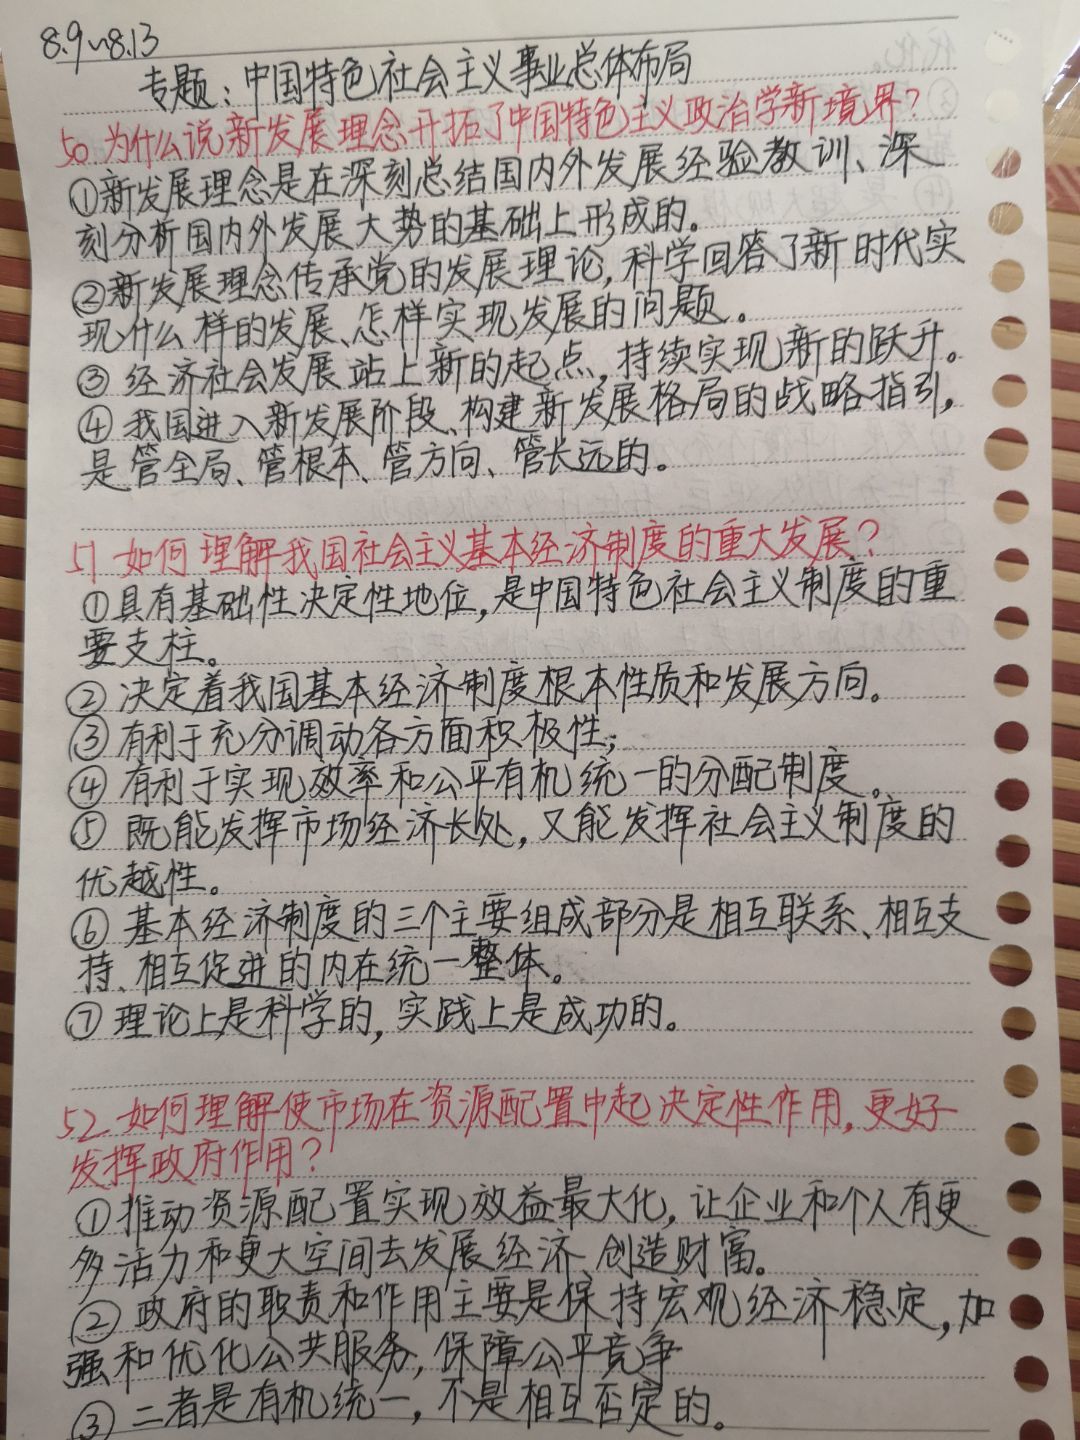 8.9~8.13
专题：中国特色社会主义事业总体布局
50.为什么说新发展理念开拓了中国特色主义政治学新境界？
①新发展理念是在深刻总结国内外发展经验教训、深
刻分析国内外发展大势的基础上形成的。
②新发展理念传承党的发展理论，科学回答了新时代实
现什么样的发展、怎样实现发展的问题。
③经济社会发展站上新的起点，持续实现新的跃升。
④我国进入新发展阶段、构建新发展格局的战略指引，
是管全局、管根本、管方向、管长远的。
51.如何理解我国社会主义基本经济制度的重大发展？
①具有基础性决定性地位，是中国特色社会主义制度的重
要支柱。
②决定着我国基本经济制度根本性质和发展方向。
③有利于充分调动各方面积极性；
④有利于实现效率和公平有机统一的分配制度。
⑤既能发挥市场经济长处，又能发挥社会主义制度的
优越性。
⑥基本经济制度的三个主要组成部分是相互联系、相互支
持、相互促进的内在统一整体。
⑦理论上是科学的，实践上是成功的。
52.如何理解使市场在资源配置中起决定性作用，更好
发挥政府作用？
①推动资源配置实现效益最大化，让企业和个人有更
多活力和更大空间去发展经济、创造财富。
②政府的职责和作用主要是保持宏观经济稳定，加
强和优化公共服务，保障公平竞争
③二者是有机统一，不是相互否定的。